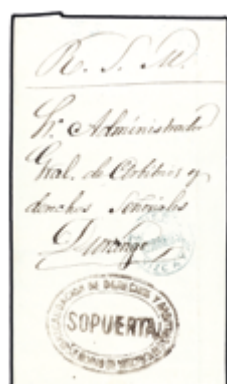 R. S. M.
Sr. Administrador
Gral. de Arbitrios y
derechos Señoriales
Durango
SOPUERTA